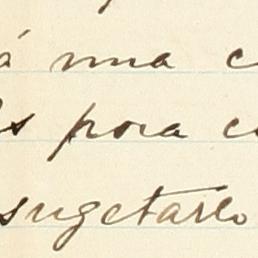 á una c
s para c
sugetarlo